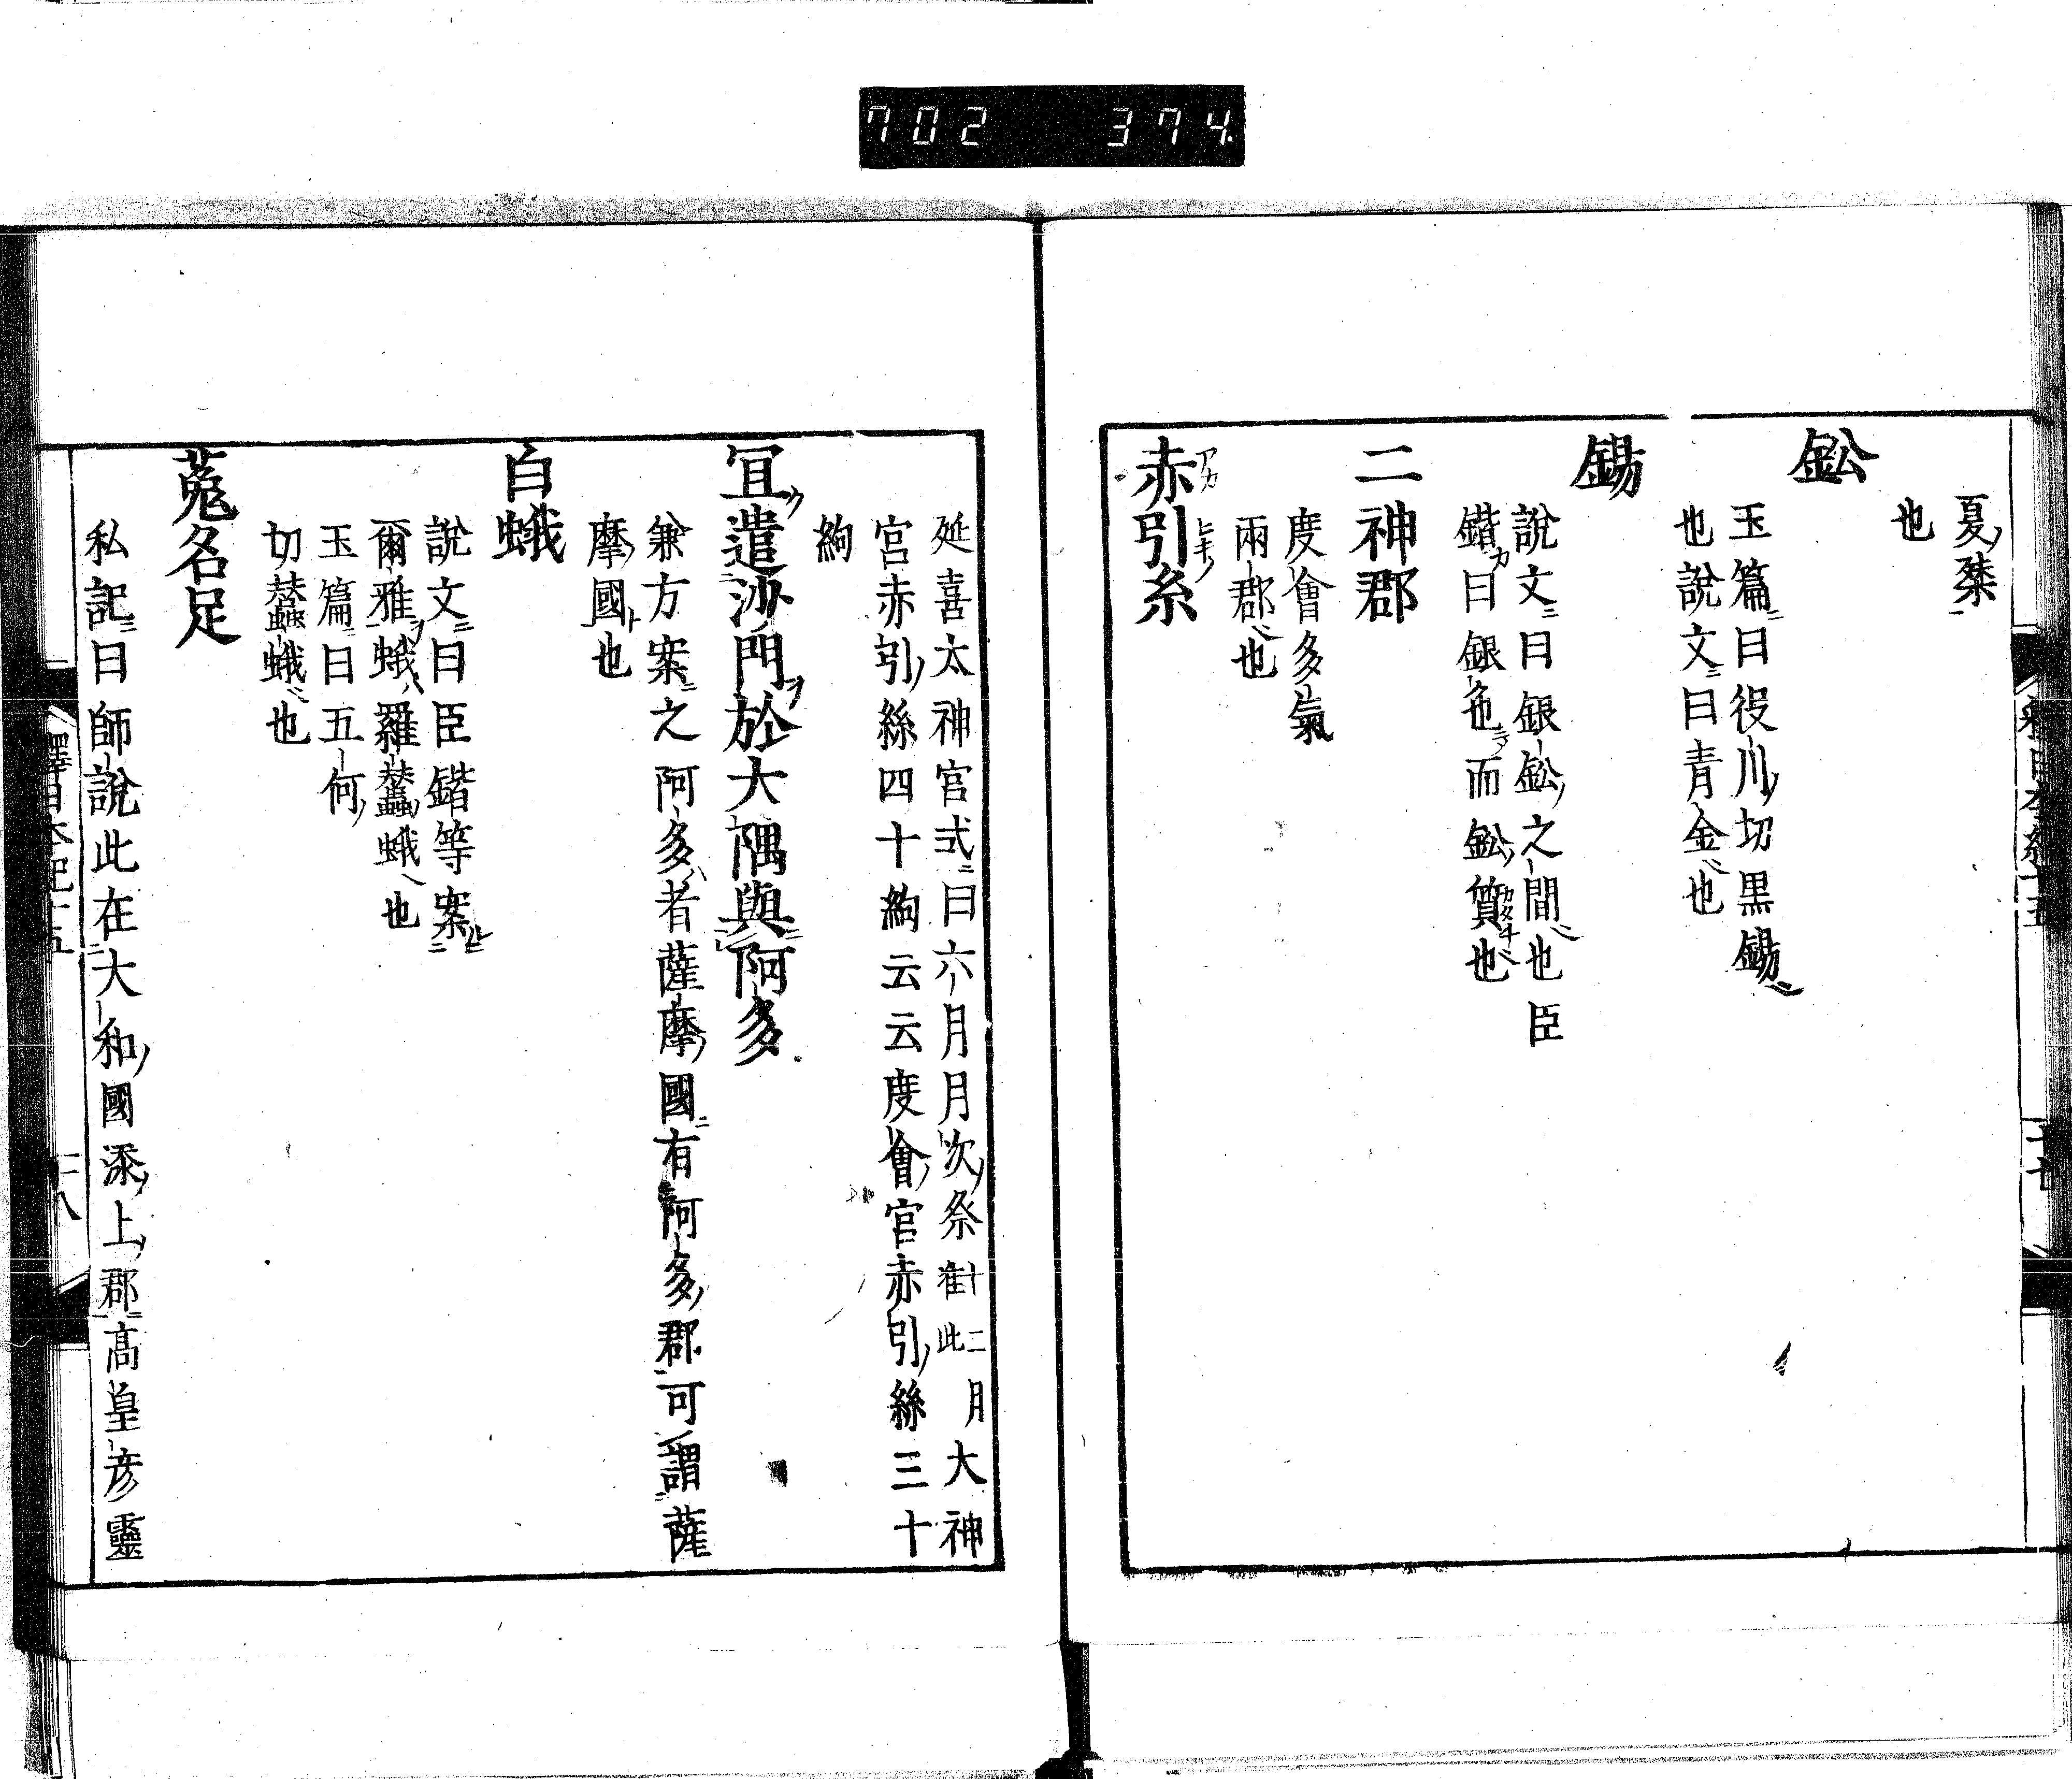 702 374
夏桀
也
鈆
玉篇曰役川切黑錫
也說文曰青金也
錫
說文曰銀鈆之間也臣
鍇曰銀色而鈆質也
二神郡
度會多氣
兩郡也
赤引糸
延喜太神宮式曰六月月次祭十二月准此大神
宮赤引絲四十絇云云度會宮赤引絲三十
絇
宜遣沙門於大隅與阿多
兼方案之阿多者薩摩國有阿多郡可謂薩
摩國也
白蛾
說文曰臣鍇等案
爾雅蛾羅蠶蛾也
玉篇曰五何
切蠶蛾也
菟名足
私記曰師說此在大和國添上郡高皇彦靈